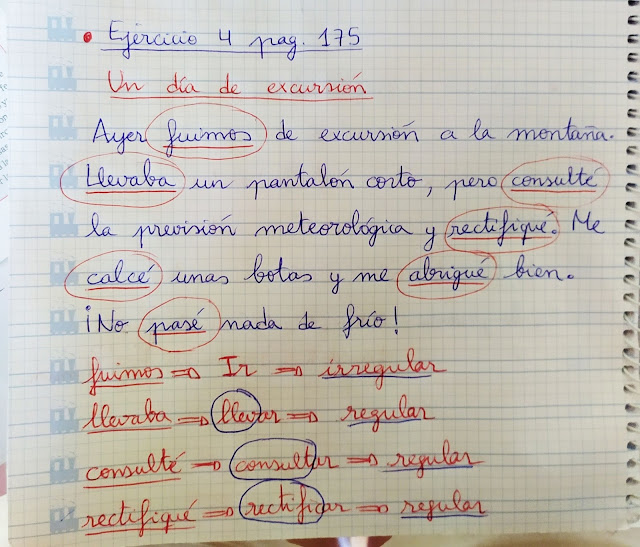 • Ejercicio 4 pag. 175
Un día de excursión
Ayer fuimos de excursión a la montaña.
Llevaba un pantalón corto, pero consulté
la previsión meteorológica y rectifiqué. Me
calcé unas botas y me abrigué bien.
¡No pasé nada de frío!
fuimos ⇒ Ir ⇒ irregular
llevaba ⇒ llevar ⇒ regular
consulté ⇒ consultar ⇒ regular
rectifiqué ⇒ rectificar ⇒ regular